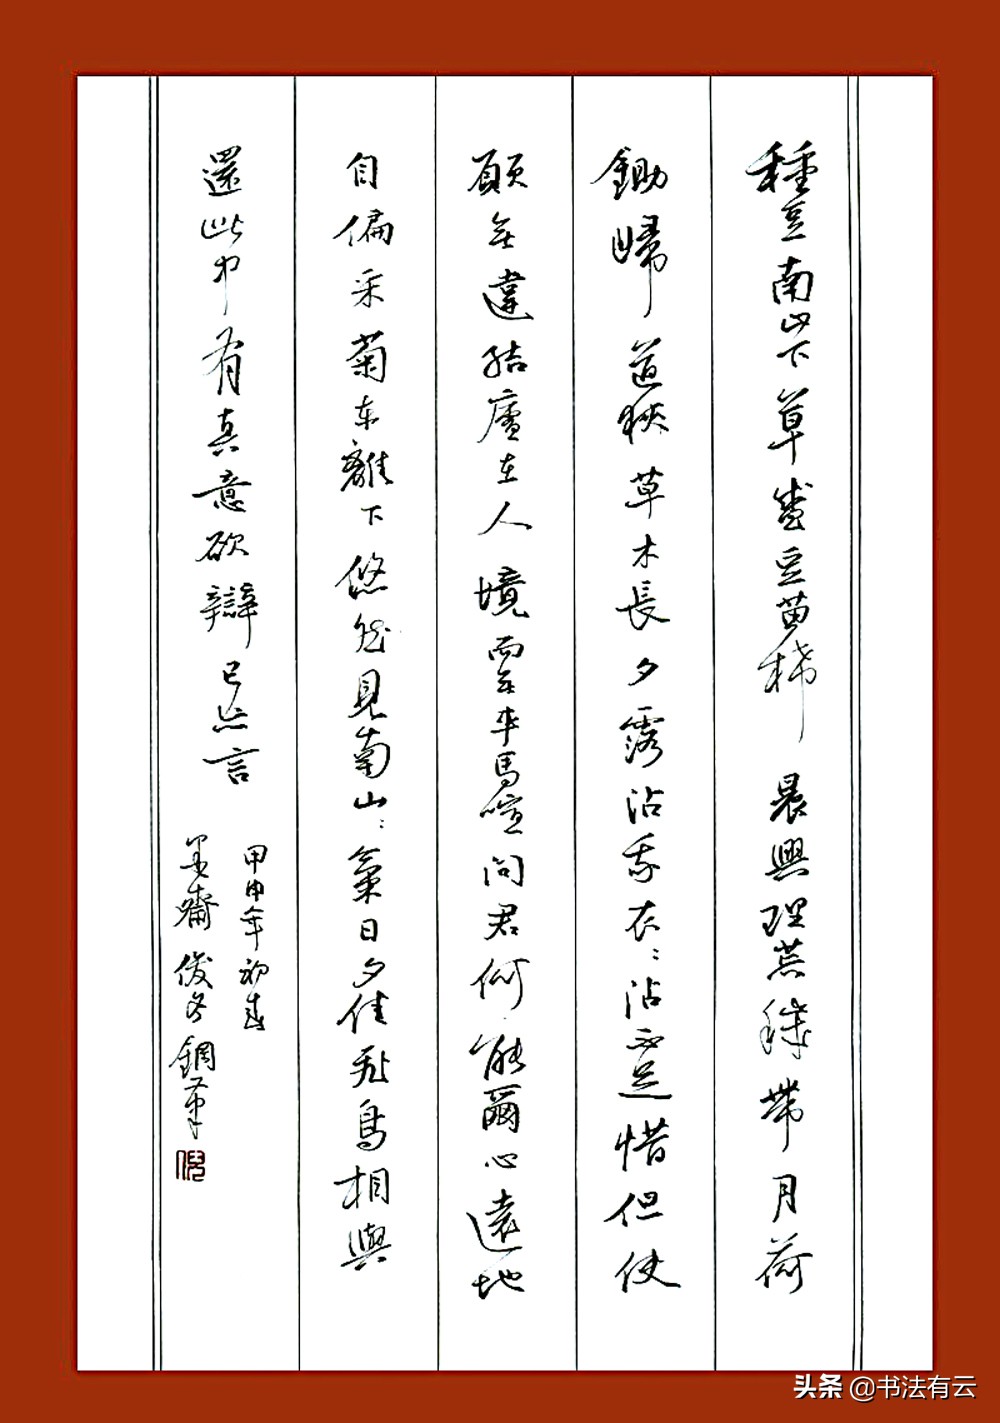 種豆南山下草盛豆苗稀晨興理荒穢帶月荷
鋤歸道狹草木長夕露沾我衣:沾不足惜但使
願無違結廬在人境而無車馬喧問君何能爾心遠地
自偏采菊東離下悠然見南山:氣日夕佳飛鳥相與
還此中有真意欲辯已忘言
甲申年初
墨齋俊鋼筆
倪
头条 @书法有云